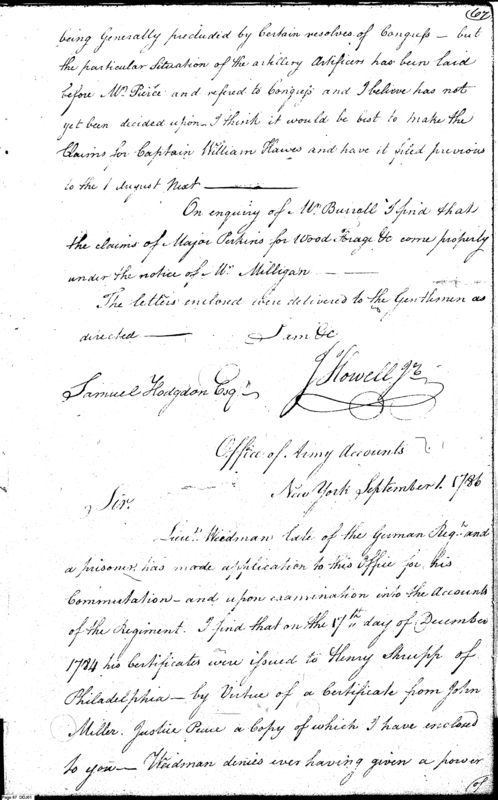 67
being Generally precluded by Certain resolves of Congress – but
the particular Situation of the artillery Artificers has been laid
before Mr. Pierce and refered to Congress and I believe has not
yet been decided upon – I think it would be best to make the
Claims for Captain William Hawes and have it filed previous
to the 1 August Next —
On enquiry of Mr. Burrell I find that
the claims of Major Perkins for Wood Forage &c come properly
under the notice of Mr. Milligan —
The letters enclosed were delivered to the Gentlemen as
directed — I em &c
J Howell Jr.
Samuel Hodgdon Esqr.
Office of Army Accounts
New York September 1. 1786
Sir.
Lieut. Weidman late of the German Regt. and
a prisoner, has made application to this Office for his
Commutation – and upon examination into the Accounts
of the Regiment. I find that on the 17th day of December
1784 his Certificates were issued to Henry Shrupp of
Philadelphia – by Virtue of a Certificate from John
Miller. Justice Peace a Copy of which I have enclosed
to you – Weidman denies ever having given a power
of
Page 67